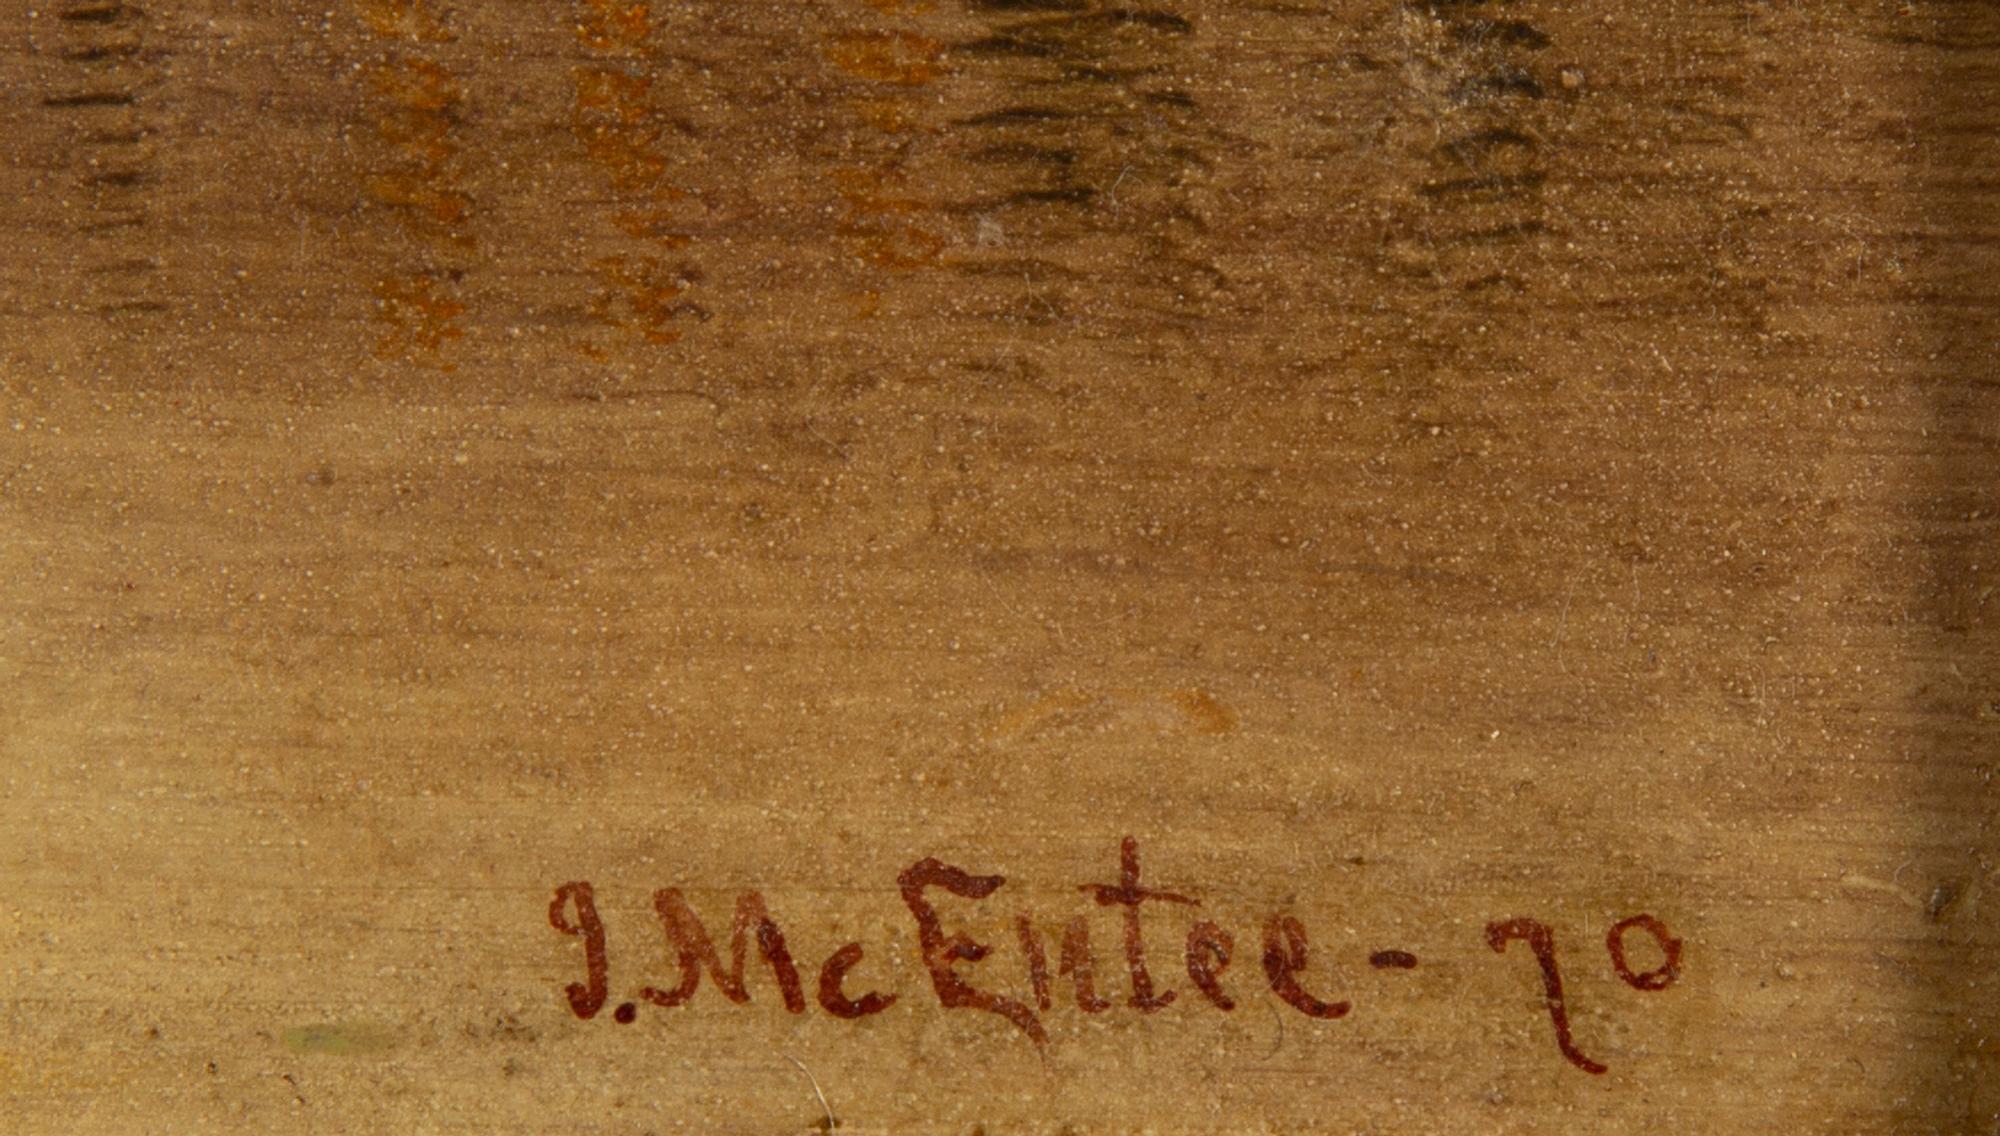 J. McEntee - 70